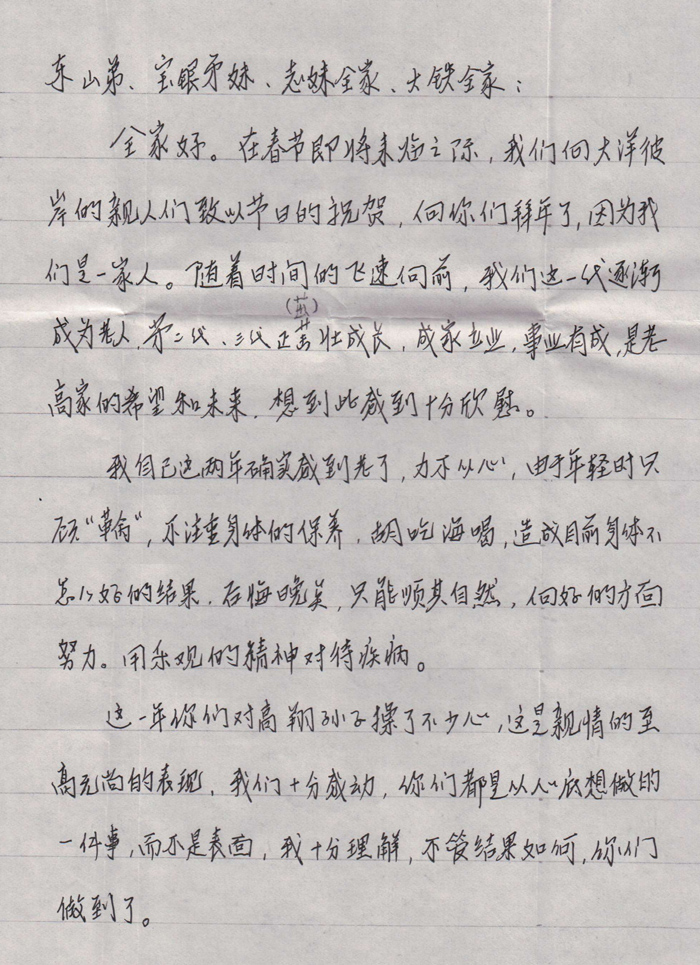 东山弟、宝眼弟妹、志妹全家、大铁全家：
全家好。在春节即将来临之际，我们向大洋彼
岸的亲人们致以节日的祝贺，向你们拜年了，因为我
们是一家人。随着时间的飞速向前，我们这一代逐渐
(茁)
成为老人，第二代、三代正茁壮成长，成家立业，事业有成，是老
高家的希望和未来，想到此感到十分欣慰。
我自己这两年确实感到老了，力不从心，由于年轻时只
顾“革命”，不注重身体的保养，胡吃海喝，造成目前身体不
怎么好的结果，后悔晚矣，只能顺其自然，向好的方面
努力。用乐观的精神对待疾病。
这一年你们对高翔孙子操了不少心，这是亲情的至
高无尚的表现，我们十分感动，你们都是从心底想做的
一件事，而不是表面，我十分理解，不管结果如何，你们
做到了。